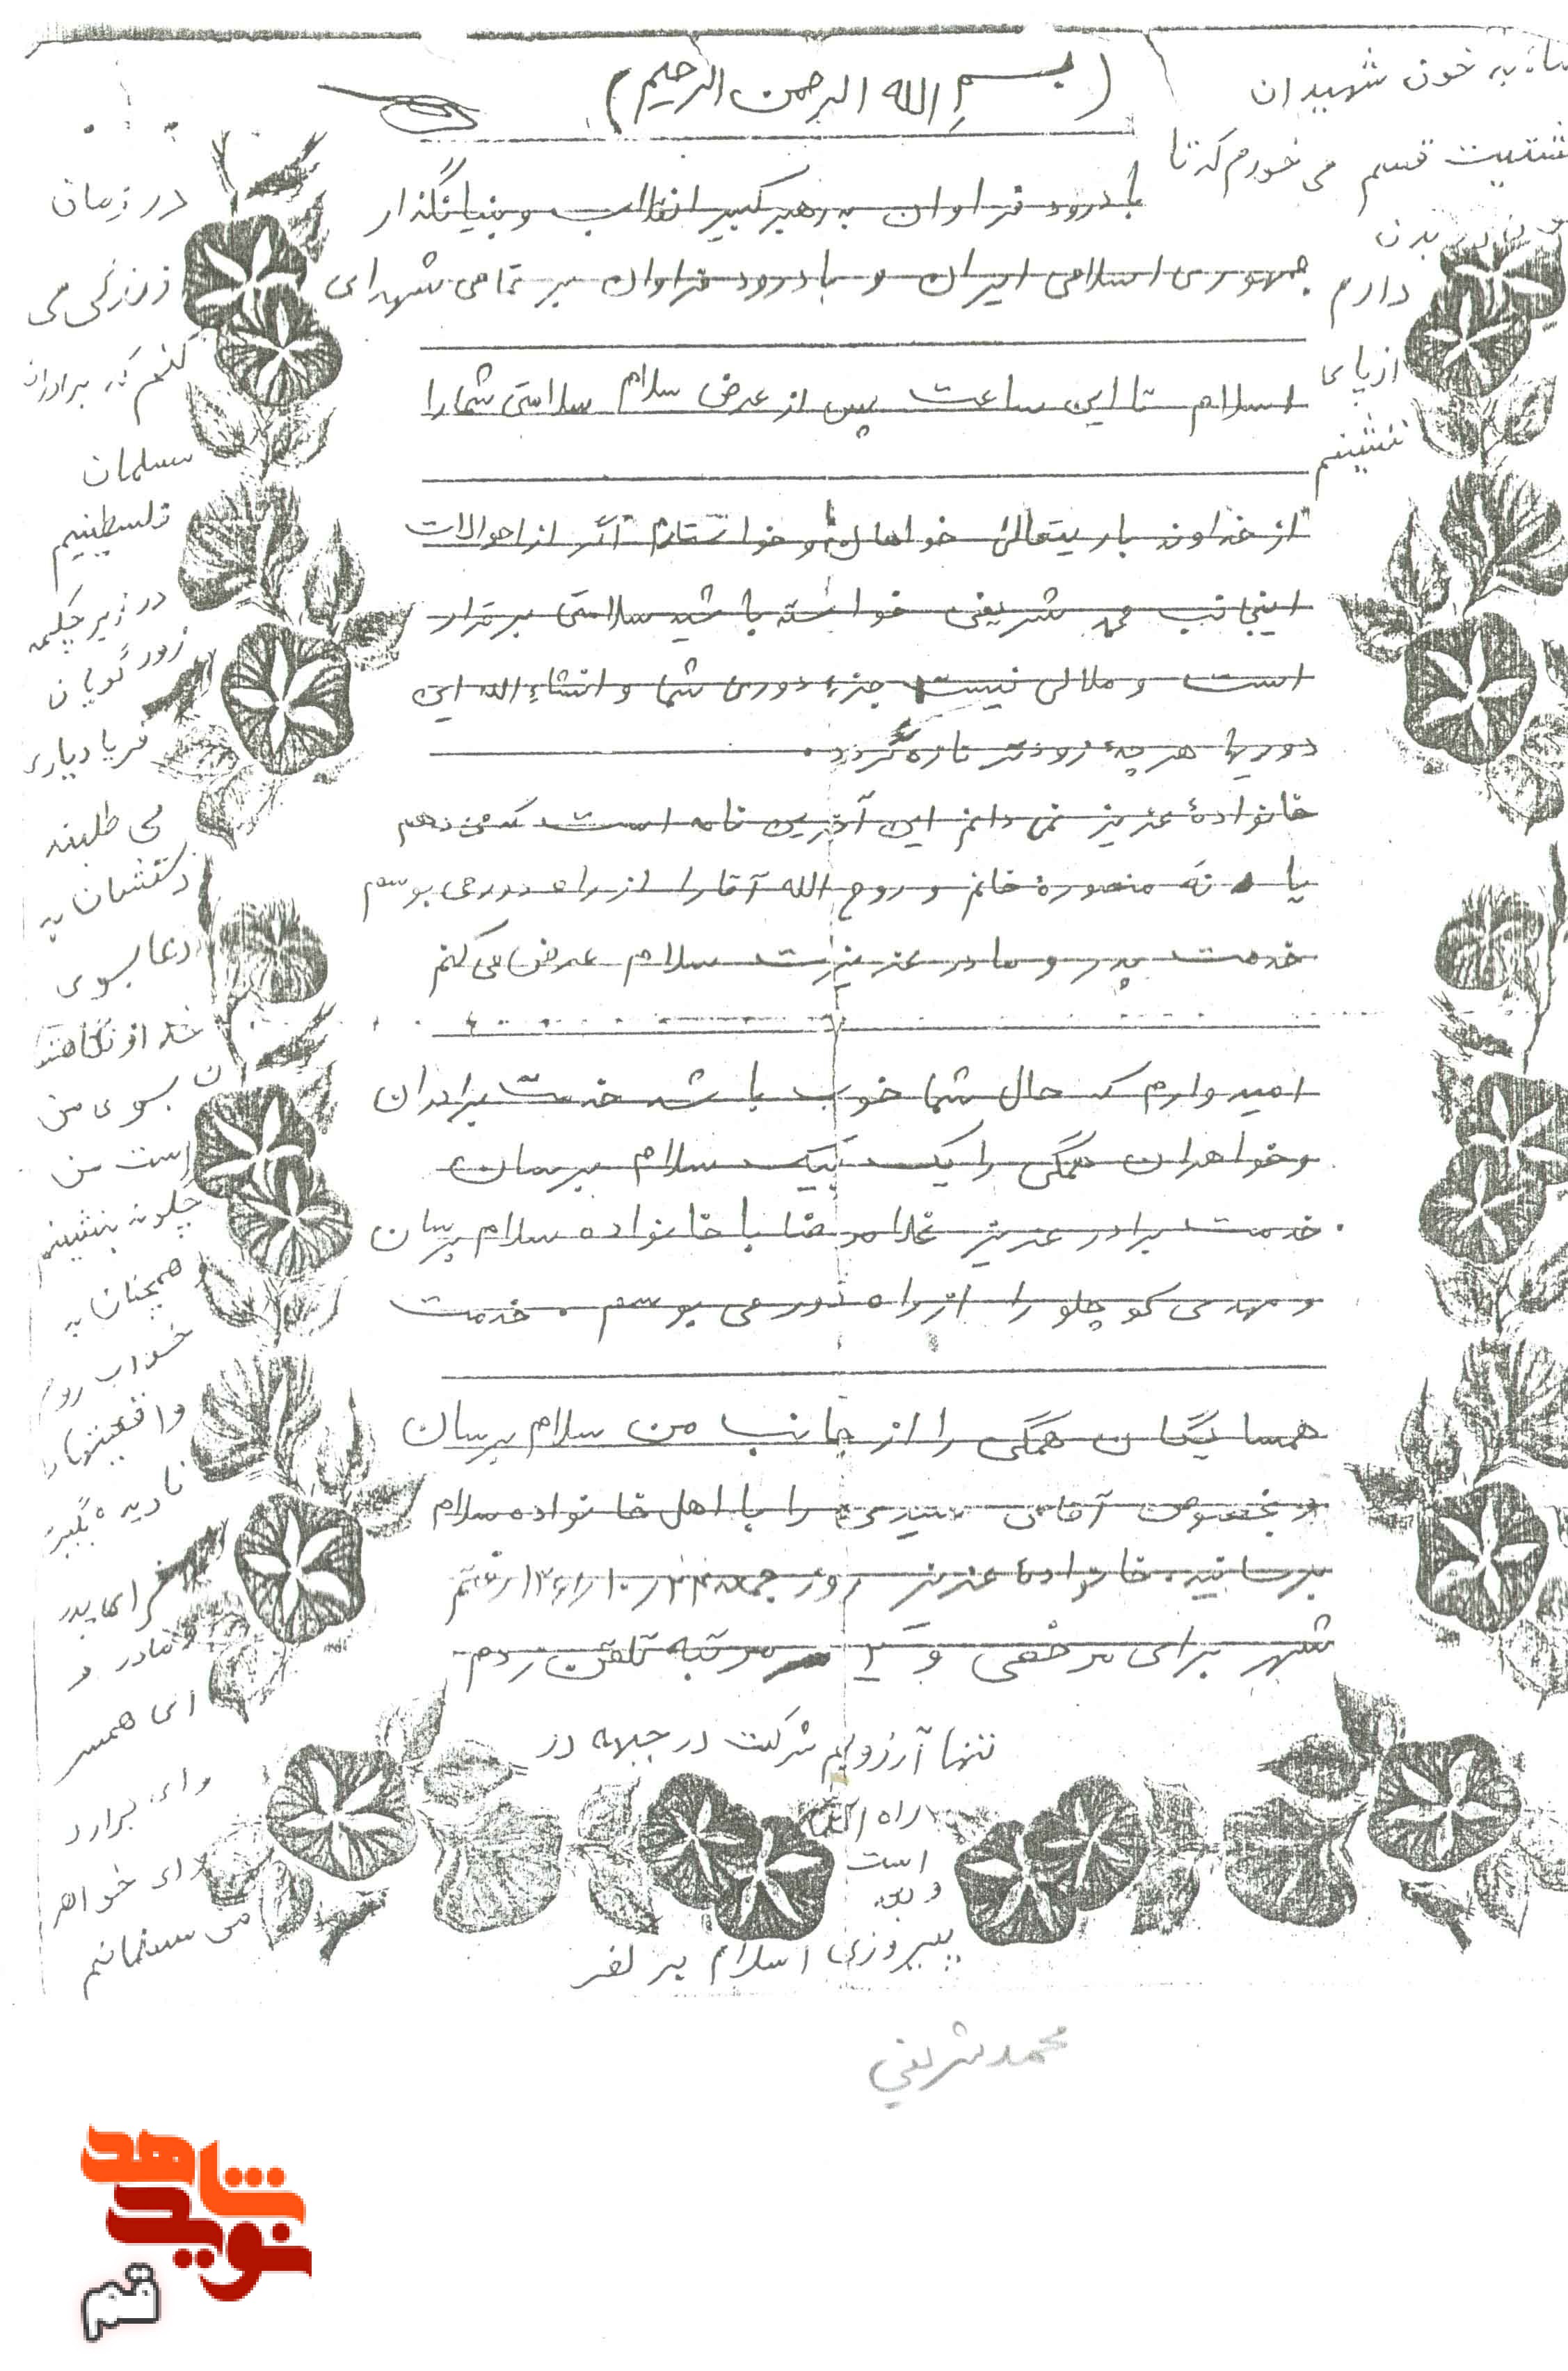 (بسم الله الرحمن الرحیم)
با درود فراوان به رهبر کبیر انقلاب و بنیانگذار
جمهوری اسلامی ایران و با درود فراوان بر تمامی شهدای
اسلام تا این ساعت پس از عرض سلام سلامتی شما را
از خداوند باریتعالی خواهان و خواستارم اگر از احوالات
اینجانب محمد شریفی خواسته باشید سلامتی برقرار
است و ملالی نیست جزء دوری شما و انشاء الله این
دوریها هر چه زودتر تازه گردد.
خانوادۀ عزیز نمی دانم این آخرین نامه است که می دهم
یا نه منصوره خانم و روح الله آقا را از راه دور می بوسم
خدمت پدر و مادر عزیزت سلام عرض می کنم
امیدوارم که حال شما خوب باشد خدمت برادران
و خواهران همگی را یک به یک سلام برسان
خدمت برادر عزیز غلامرضا با خانواده سلام برسان
و مهدی کوچلو را از راه دور می بوسم. خدمت
همسایگان همگی را از جانب من سلام برسان
بخصوص آقای را با اهل خانواده سلام
برسانید. خانوادۀ عزیز روز جمعه ۲۴ر۱۰ر۱۳۶۱ رفتم
شهر برای مرخصی و ۲ مرتبه تلفن زدم.
تنها آرزویم شرکت در جبهه در
راه الله
است
و به
پیروزی اسلام بر کفر
به خون شهیدان
قسم می خورم که تا
در بدن
دارم
از پای
ننشینم
در زمان
زندگی می
کنم که برادران
مسلمان
فلسطینیم
در زیر چکمه
زورگویان
فریاد یاری
می طلبند
دستشان به
دعا بسوی
خدا و نگاهش
ان بسوی من
است من
چگونه بنشینم
و همچنان به
خواب روم
واقعیتها را
نادیده بگیرم
ای پدر
و مادر و
ای همسر
و ای برادر
و ای خواهر
می
محمد شریفی
نوید شاهد
قم